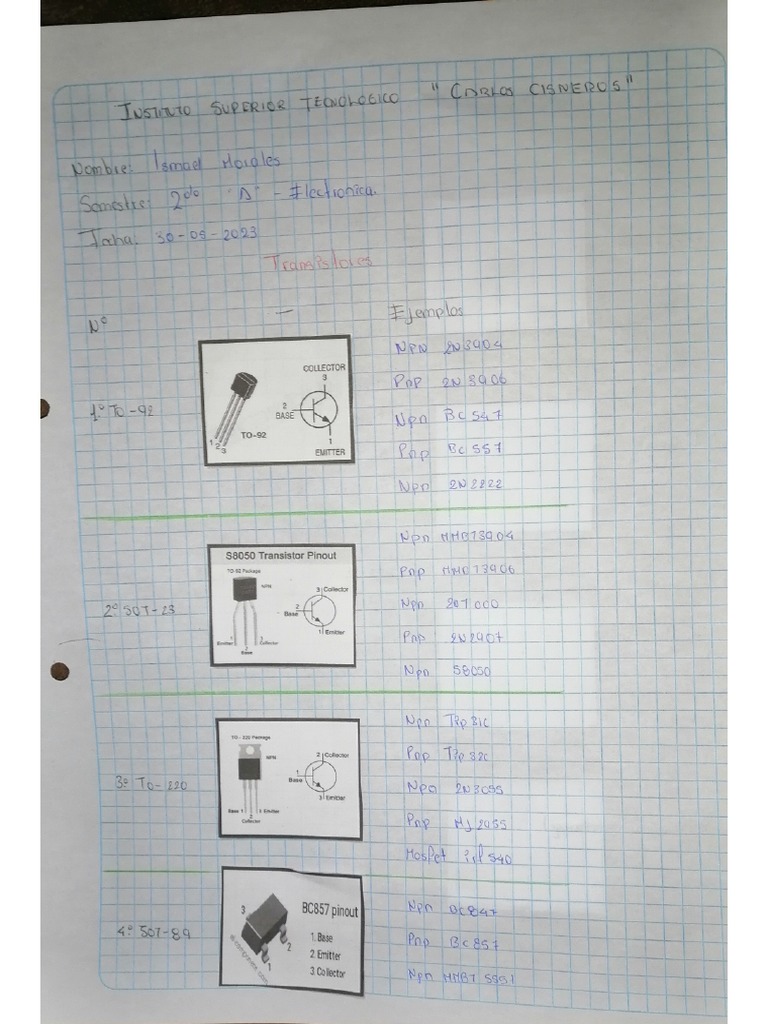 INSTITUTO SUPERIOR TECNOLOGICO "CARLOS CISNEROS"
Nombre: Ismael Morales
Semestre: 2do "A" - Electronica.
Fecha: 30-05-2023
Transistores
N° — Ejemplos
1° TO-92
COLLECTOR
3
2
BASE
1
EMITTER
1 2 3
TO-92
Npn 2N3904
Pnp 2N3906
Npn BC547
Pnp BC557
Npn 2N2222
2° SOT-23
S8050 Transistor Pinout
TO-92 Package
NPN
3 Collector
2
Base
1 Emitter
1 2 3
Emitter Base Collector
Npn MMBT3904
Pnp MMBT3906
Npn 207000
Pnp 2N2907
Npn S8050
3° TO-220
TO - 220 Package
NPN
2 Collector
1
Base
3 Emitter
Base 1 3 Emitter
2
Collector
Npn Tip31c
Pnp Tip32c
Npn 2N3055
Pnp MJ2955
Mosfet irf540
4° SOT-89
BC857 pinout
3
2
1
1. Base
2. Emitter
3. Collector
Npn BC847
Pnp BC857
Npn MMBT5551